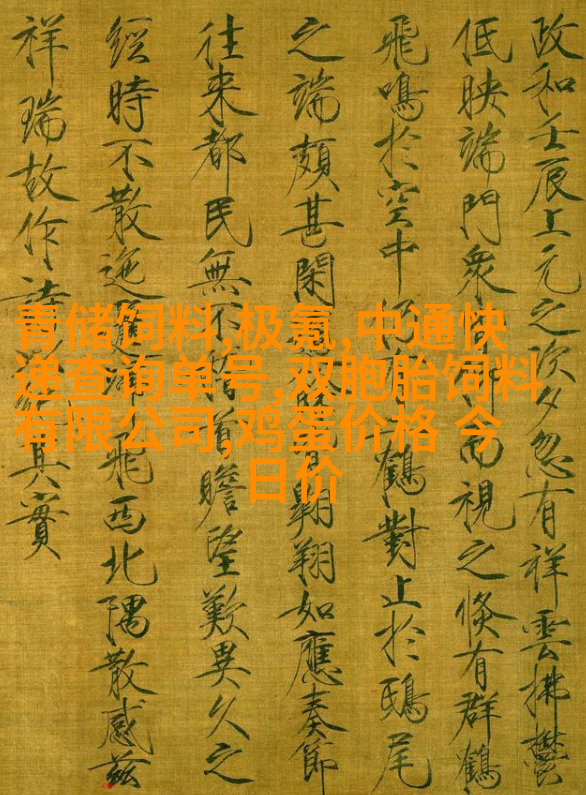 政和壬辰上元之次夕忽有祥雲拂鬱
低映端門衆而視之倏有群鶴
飛鳴於空中仍鶴對止於鴟尾
之端頗甚閑翱翔如應奏節
往來都民無不首瞻望歎異久之
經時不散迤飛西北隅散感茲
祥瑞故作詩其實
青储饲料,极氪,中通快
递查询单号,双胞胎饲料
有限公司,鸡蛋价格 今
日价